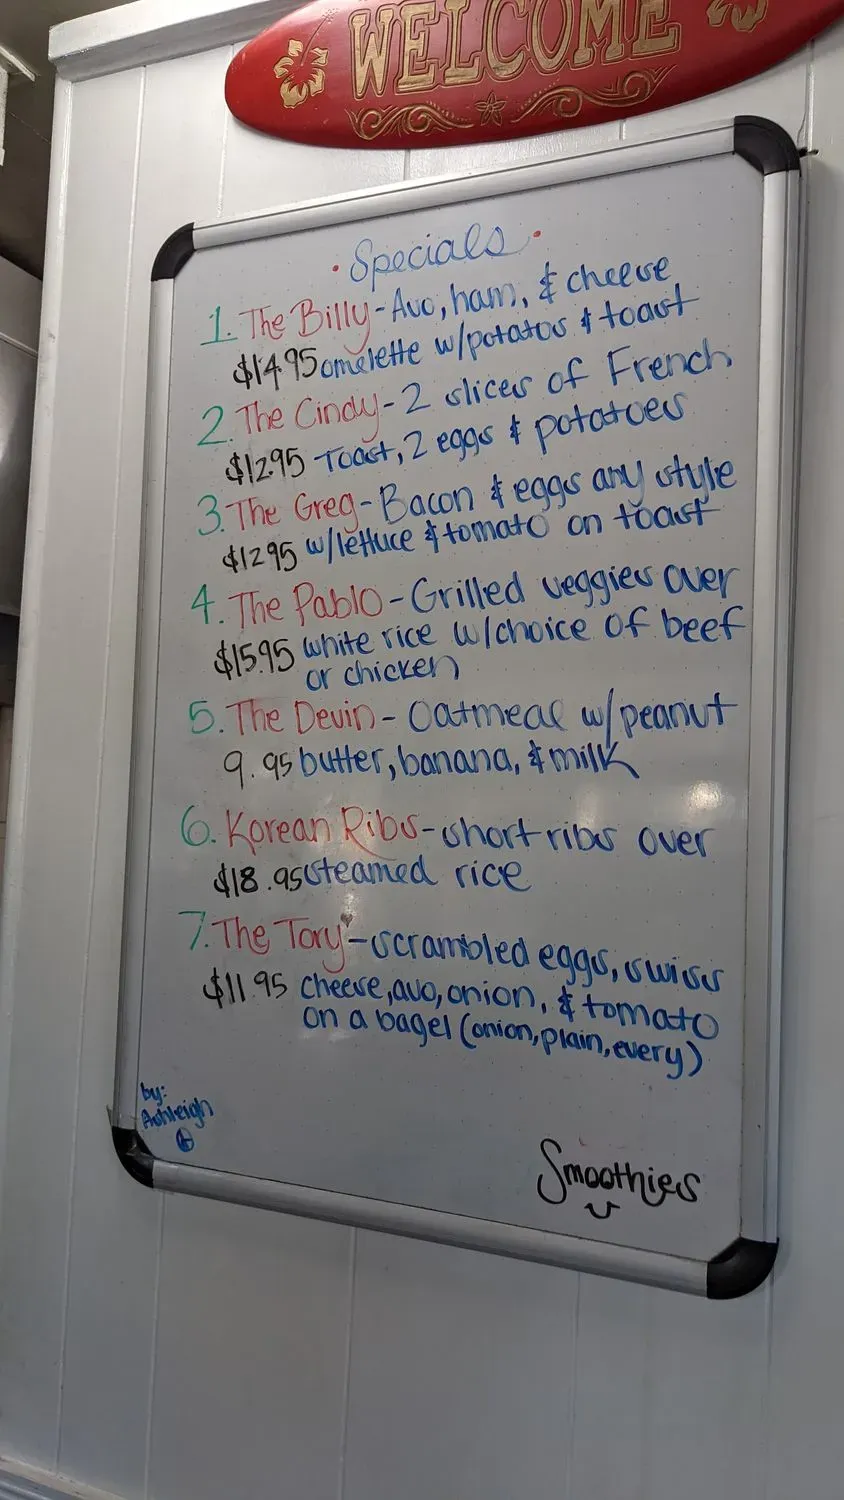 WELCOME
• Specials •
1. The Billy - Avo, ham, & cheese
$14.95 omelette w/potatos & toast
2. The Cindy - 2 slices of French
$12.95 Toast, 2 eggs & potatoes
3. The Greg - Bacon & eggs any style
$12.95 w/lettuce & tomato on toast
4. The Pablo - Grilled veggies over
$15.95 white rice w/choice of beef
or chicken
5. The Devin - Oatmeal w/peanut
9.95 butter, banana, & milk
6. Korean Ribs - short ribs over
$18.95 steamed rice
7. The Tory - scrambled eggs, swiss
$11.95 cheese, avo, onion, & tomato
on a bagel (onion, plain, every)
by:
Ashleigh
Smoothies